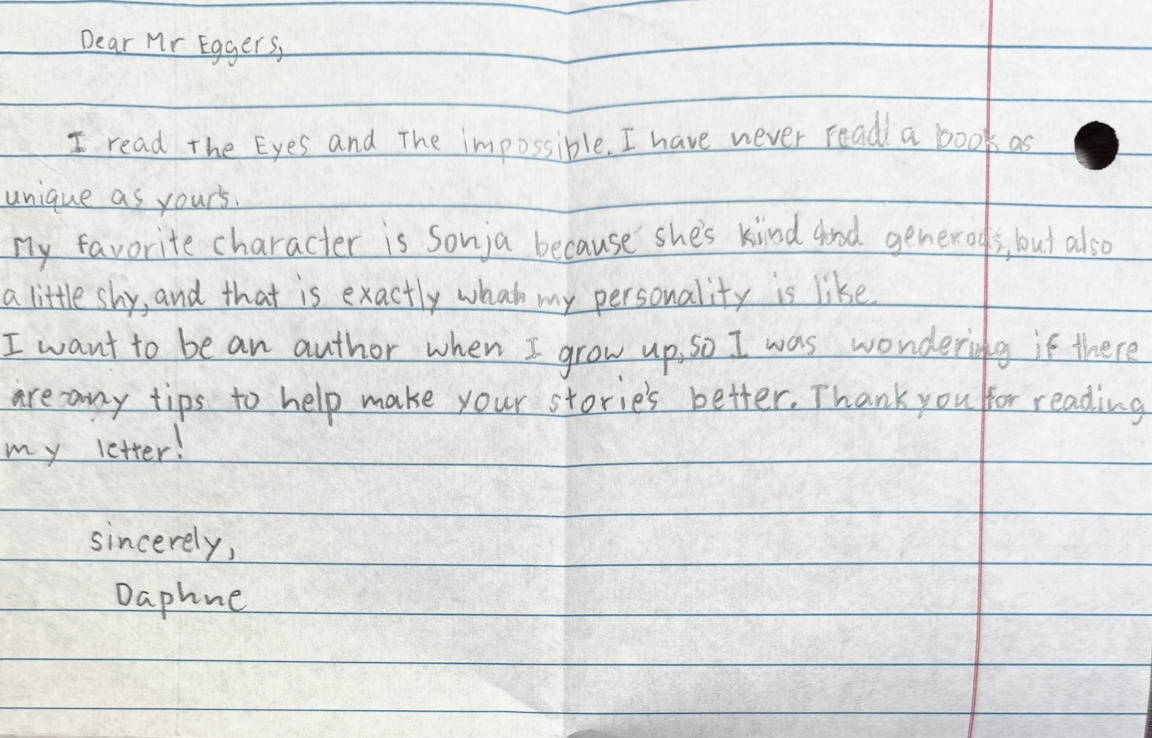 Dear Mr Eggers,
I read the Eyes and The impossible. I have never read a book as
unique as your's.
My favorite character is Sonja because she's kind and generous, but also
a little shy, and that is exactly what my personality is like.
I want to be an author when I grow up, so I was wondering if there
are any tips to help make your storie's better. Thank you for reading
my letter!
sincerely,
Daphne